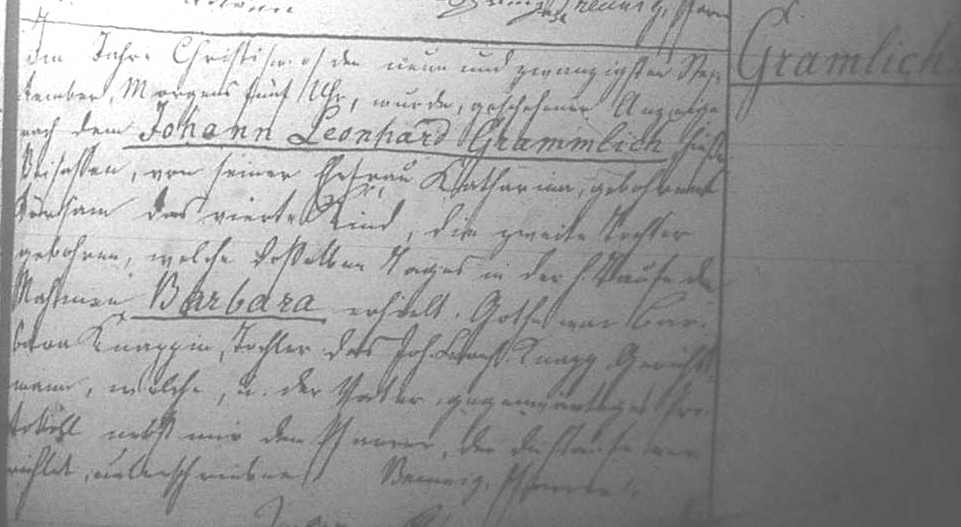 Gramlich
Im Jahre Christi den neun und zwanzigsten Sep-
tember, Morgens fünf Uhr, wurde, geschehener Anzeige
nach dem Johann Leonhard Grammlich
Beisassen, von seiner Ehefrau Katharina, gebohrene
das vierte Kind, die zweite Tochter
gebohren, welche desselben Tages in der h. Taufe den
Nahmen Barbara erhielt. Gothe war Bar-
bara Knappin, Tochter des Joh. Knapp Gerichts-
mann, welche, u. der Vater gegenwärtiges Pro-
tokoll nebst mir dem Pfarrer, der die Taufe ver-
richtet, unterschrieben. Pfarrer.